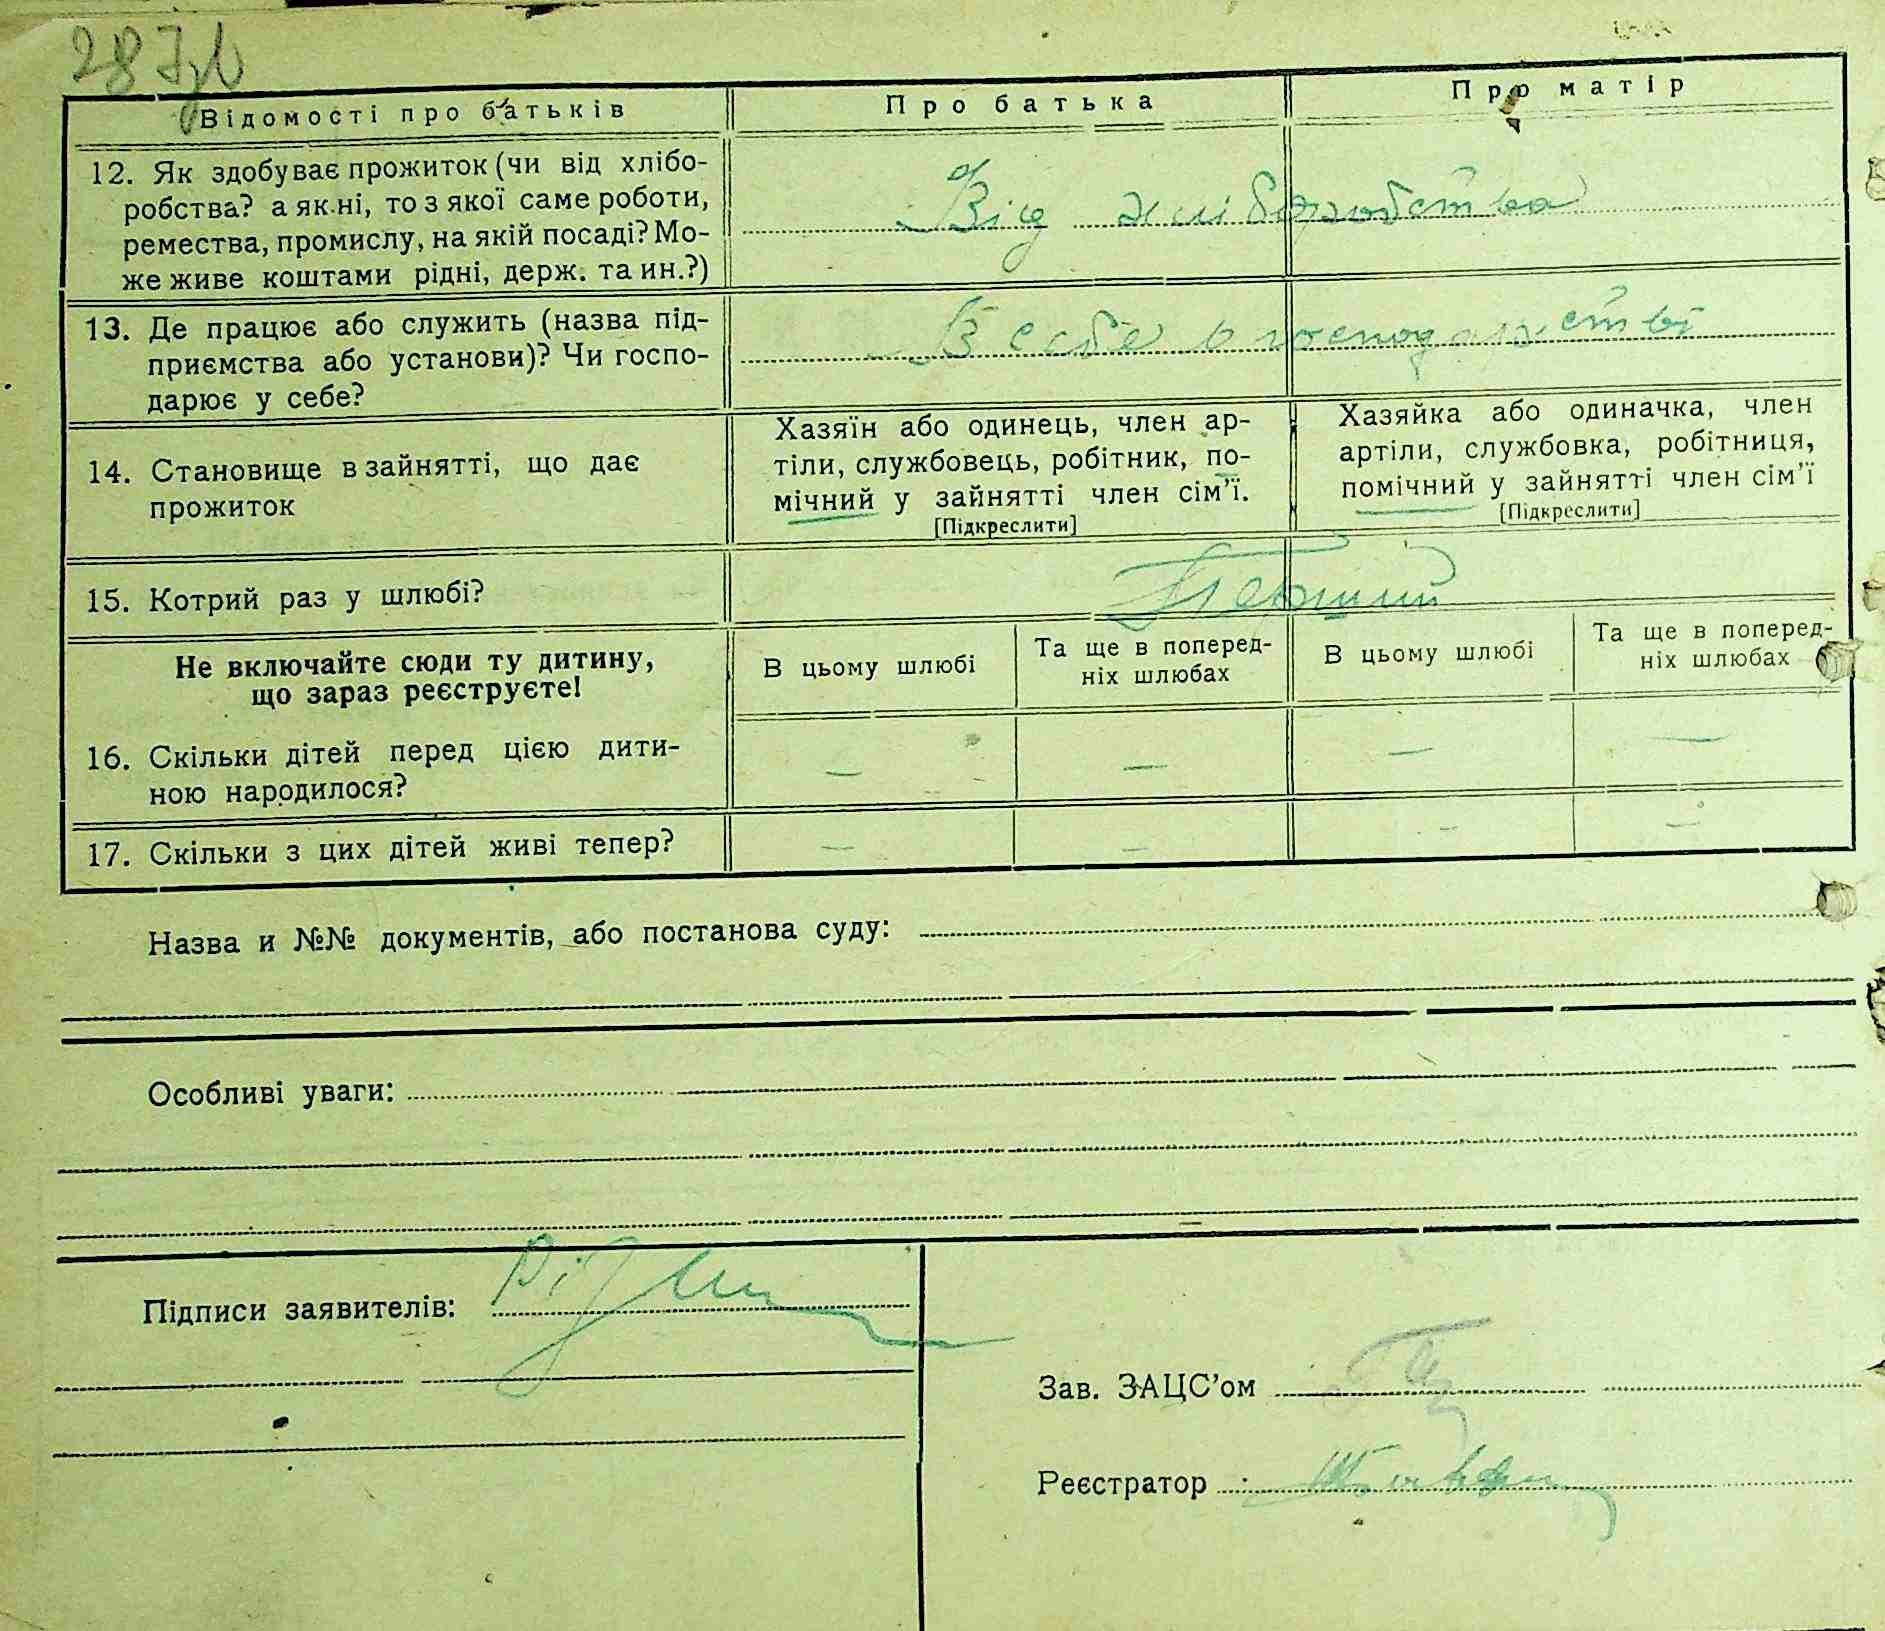 28
Відомості про батьків
Про батька
Про матір
12. Як здобуває прожиток (чи від хлібо-
робства? а як ні, то з якої саме роботи,
ремества, промислу, на якій посаді? Мо-
же живе коштами рідні, держ. та ин.?)
Від хліборобства
13. Де працює або служить (назва під-
приємства або установи)? Чи госпо-
дарює у себе?
В себе в господарстві
14. Становище в зайнятті, що дає
прожиток
Хазяїн або одинець, член ар-
тіли, службовець, робітник, по-
мічний у зайнятті член сім'ї.
[Підкреслити]
Хазяйка або одиначка, член
артіли, службовка, робітниця,
помічний у зайнятті член сім'ї
[Підкреслити]
15. Котрий раз у шлюбі?
Перший
Не включайте сюди ту дитину,
що зараз реєструєте!
В цьому шлюбі
Та ще в поперед-
ніх шлюбах
В цьому шлюбі
Та ще в поперед-
ніх шлюбах
16. Скільки дітей перед цією дити-
ною народилося?
— — — —
17. Скільки з цих дітей живі тепер?
— — — —
Назва и №№ документів, або постанова суду:
Особливі уваги:
Підписи заявителів:
Зав. ЗАЦС'ом
Реєстратор